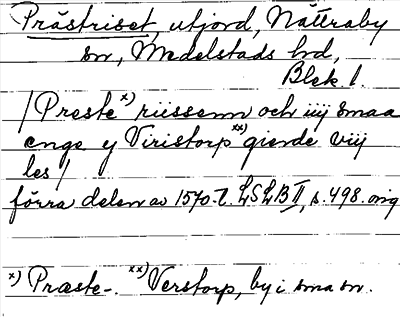 Prästriset, utjord, Nättraby
sn, Medelstads hd,
Blek. l.
/Preste x) riissenn och iiij smaa
enge y Viristorp xx) giende viij
les/
förra delen av 1570-t. LSLB II, s. 498. orig
x) Præste-. xx) Verstorp, by i sma sn.